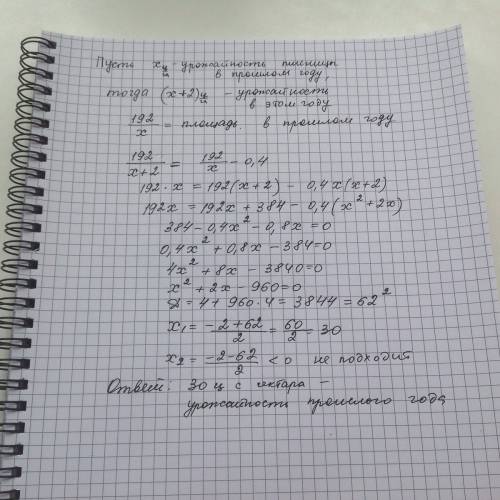 Пусть x ц/га - урожайность пшеницы
в прошлом году,
тогда (x+2) ц/га - урожайность
в этом году
192/x = площадь в прошлом году
192/(x+2) = 192/x - 0,4
192·x = 192(x+2) - 0,4x(x+2)
192x = 192x + 384 - 0,4(x² + 2x)
384 - 0,4x² - 0,8x = 0
0,4x² + 0,8x - 384 = 0
4x² + 8x - 3840 = 0
x² + 2x - 960 = 0
D = 4 + 960·4 = 3844 = 62²
x₁ = (-2+62)/2 = 60/2 = 30
x₂ = (-2-62)/2 < 0 не подходит
Ответ: 30 ц с гектара -
урожайность прошлого года